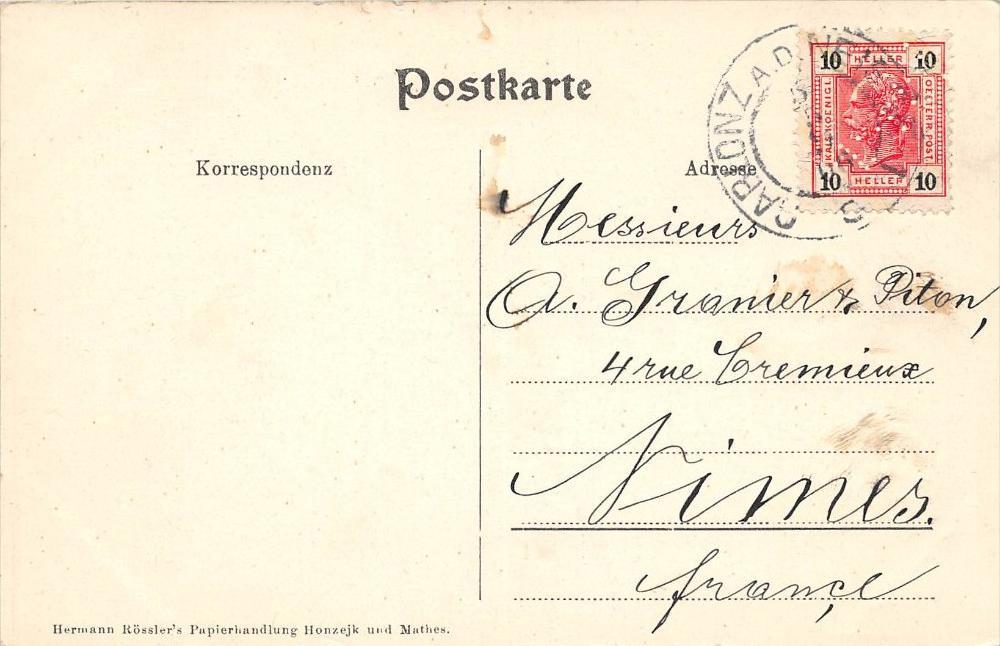 Postkarte
Korrespondenz
Adresse
GABLONZ A.D.
10 HELLER 10
KAIS. KOENIGL.
OESTERR. POST.
10 HELLER 10
Messieurs
A. Granier & Piton,
4 rue Cremieux
Nimes.
françe
Hermann Rössler's Papierhandlung Honzejk und Mathes.